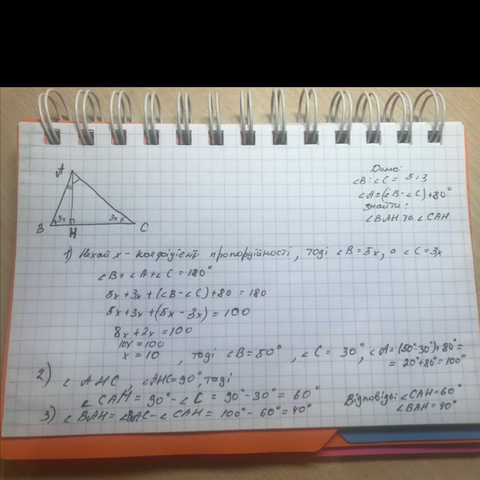 A
5x
3x
B
H
C
Дано:
∠B:∠C = 5:3
∠A=(∠B-∠C)+80°
Знайти:
∠BAH та ∠CAH
1) Нехай x - коефіцієнт пропорційності, тоді ∠B=5x, а ∠C=3x
∠B+∠A+∠C=180°
5x+3x+(∠B-∠C)+80=180
5x+3x+(5x-3x)=100
8x+2x=100
10x=100
x=10, тоді ∠B=50°, ∠C=30°, ∠A=(50°-30°)+80°=
=20°+80°=100°
2) ∠AHC ∠AHC=90°, тоді
∠CAH=90°-∠C=90°-30°=60°
3) ∠BAH=∠BAC-∠CAH=100°-60°=40°
Відповідь: ∠CAH=60°
∠BAH=40°